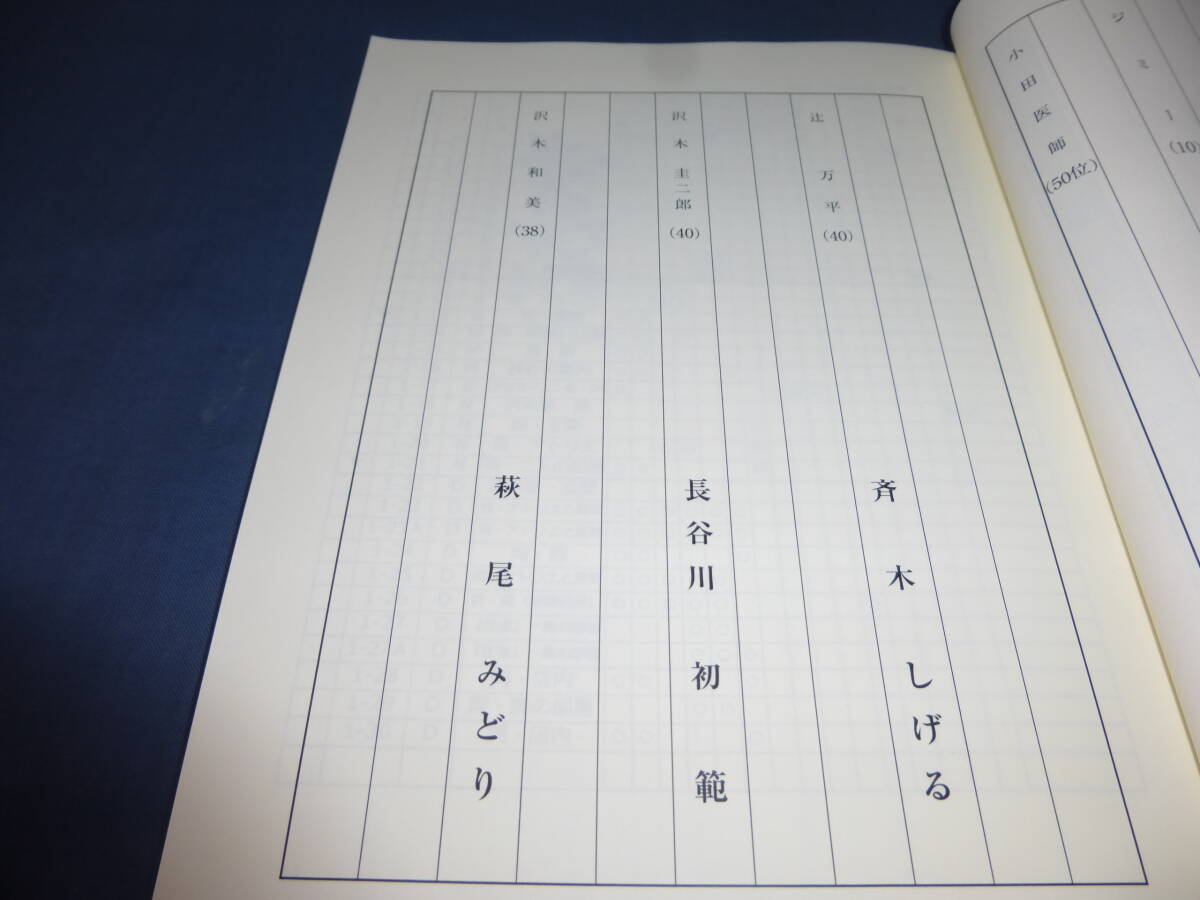 ジミー (10)
小田医師 (50位)
辻万平 (40) 斉木しげる
沢木圭二郎 (40) 長谷川初範
沢木和美 (38) 萩尾みどり